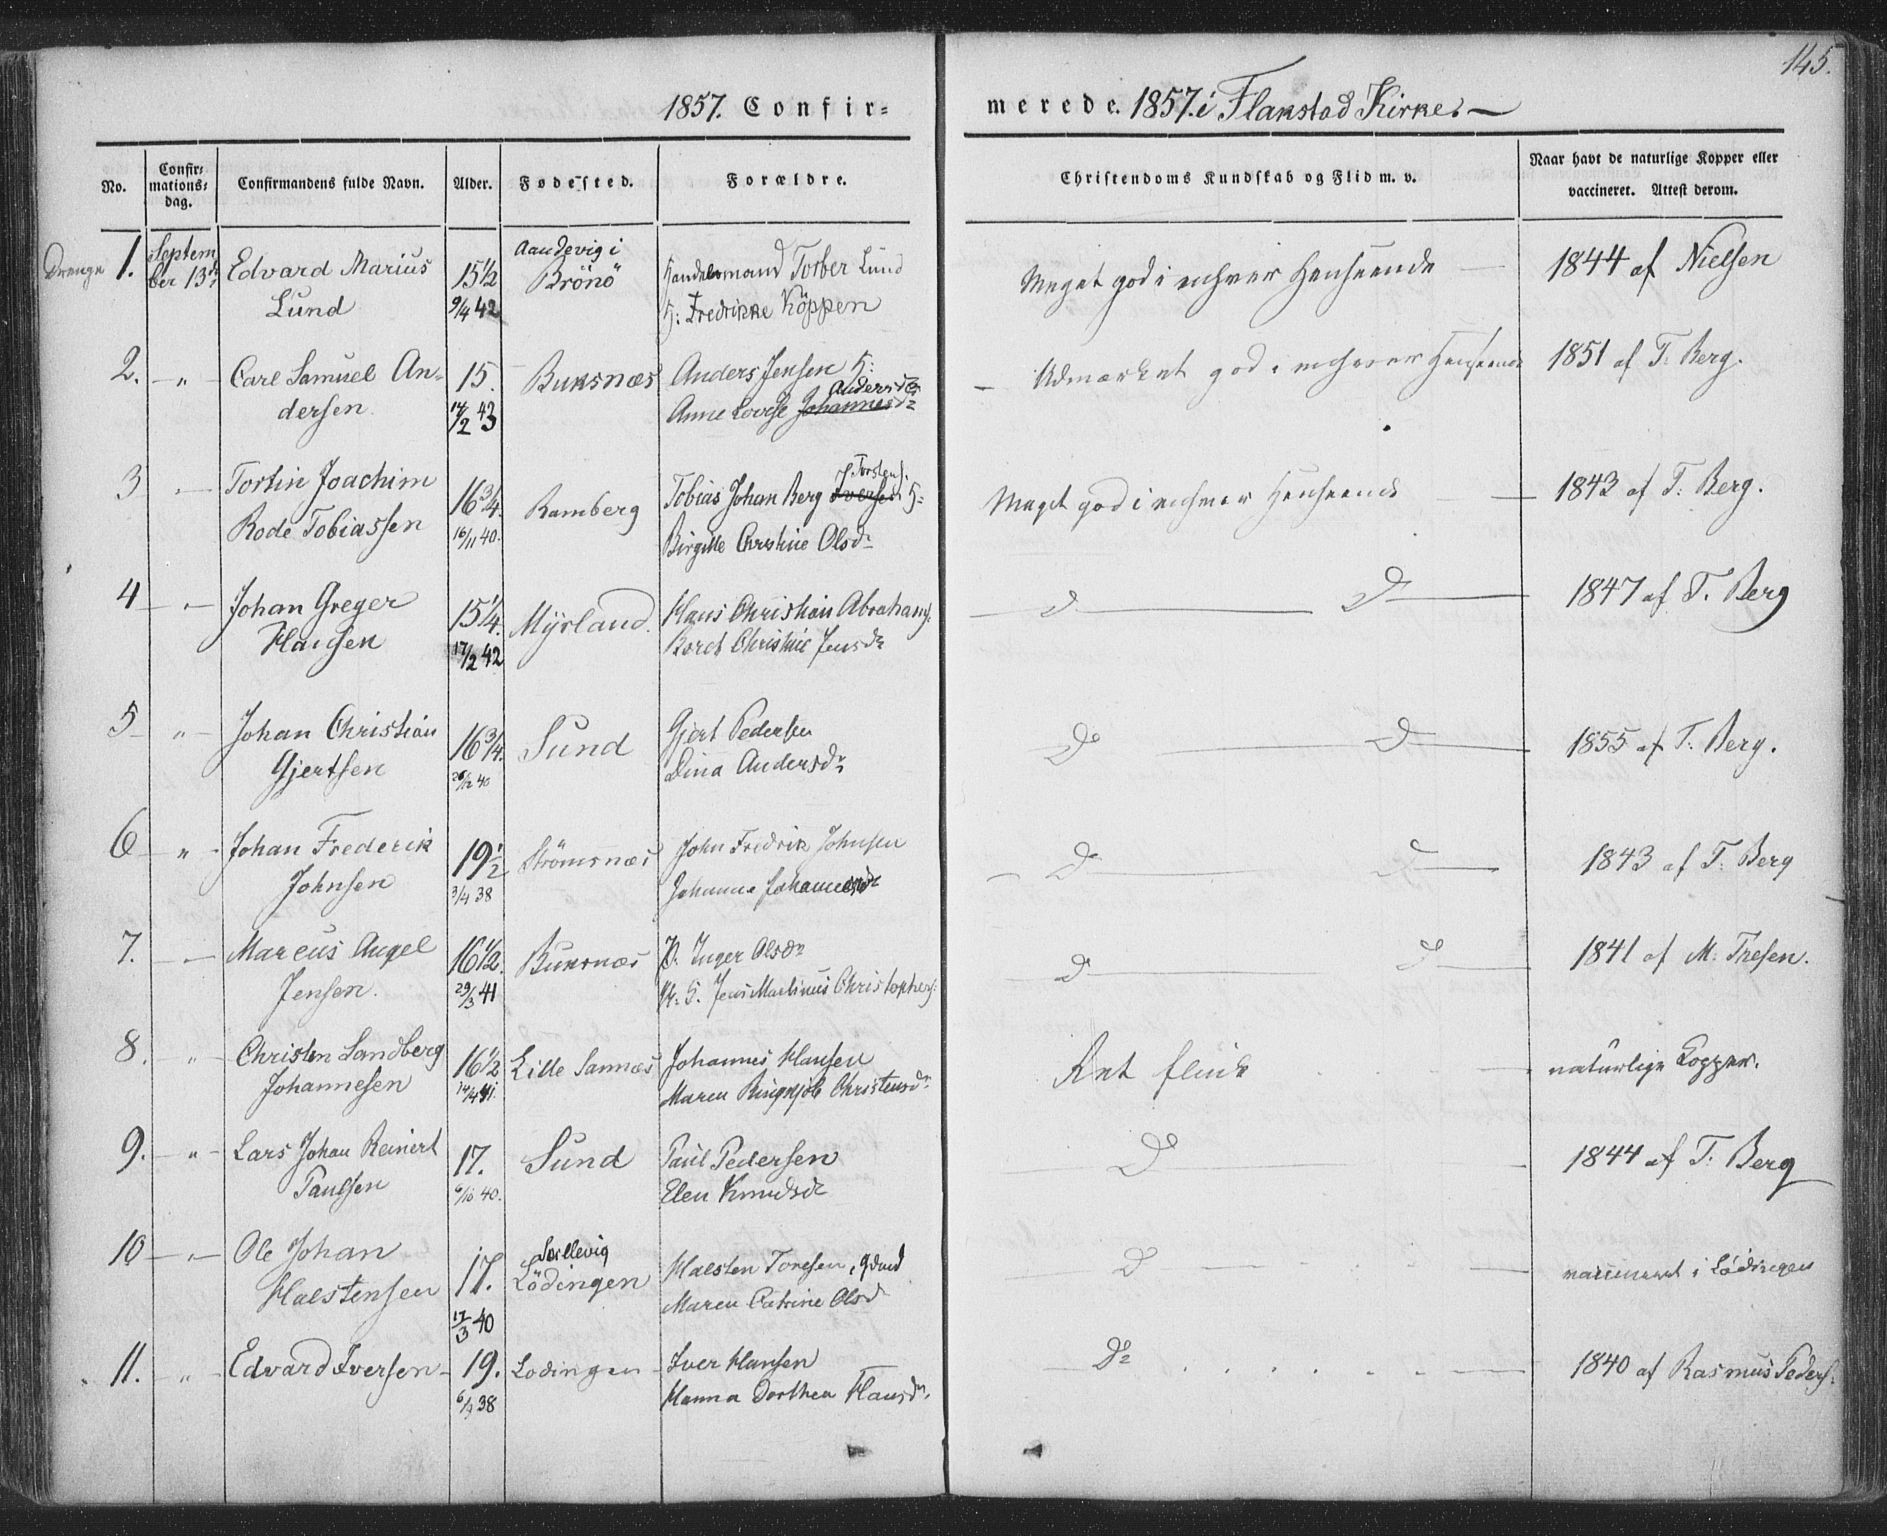 145.
1857. Confir- merede. 1857. i Flakstad Kirke. —
No. Confir- mations- dag. Confirmandens fulde Navn. Alder. Fødested. Forældre. Christendoms Kundskab og Flid m. v. Naar havt de naturlige Kopper eller vaccineret. Attest derom.
Drenge 1. Septem Edvard Marius 15 1/2 Aandevig i Handelsmand Torber Lund Meget god i enhver Henseende — 1844 af Nielsen
ber 13de Lund 9/4 42 Brönö H: Fredrikke Köppen
2. — " — Carl Samuel An- 15. Buksnæs Anders Jensen H: — Udmærket god i enhver Henseende 1851 af T. Berg.
dersen 14/2 43 Anne Lovise Johannesdr Andersdr
3 — Tortin Joachim 16 3/4. Ramberg Tobias Johan Berg Iversen Torstens. H: Meget god i enhver Henseende — 1843 af T. Berg.
Rode Tobiassen 16/11 40. Birgitte Christine Olsdr
4 — " — Johan Greger 15 1/4. Myrland. Hans Christian Abrahams. — D — D — 1847 af T. Berg
Hansen 17/2 42 Beret Christine Jensdr
5 — " — Johan Christian 16 3/4. Sund Gjert Pedersen Do — Do — 1855 af T. Berg.
Gjertsen 26/12 40 Dina Andersdr
6 — " — Johan Frederik 19 1/2 Strömsnæs John Fredrik Johnsen — Do — D — 1843 af T. Berg
Johnsen 3/4 38 Johanna Johannesdr
7. — Marcus Angel 16 1/2. Buksnæs P. Inger Olsdr D — D — 1841 af M. Tresen.
Jensen. 29/3 41 U. S. Jens Martinus Christophers:
8. — " — Christen Sandberg 16 1/2 Lille Sannæs Johannes Hansen Ret flink — naturlige Kopper.
Johannesen 14/4 41. Maren Ringkjöb Christensdr
9. — " — Lars Johan Reinert 17. Sund Paul Pedersen Do — 1844 af T. Berg
Paulsen 6/10 40. Elen Knudsdr
10 — " — Ole Johan 17. Sörllevig Halsten Toresen, Gdmd D — vaccineret i Lödingen
Halstensen 17/3 40 Lödingen Maren Catrine Olsd
11. — " — Edvard Iversen — 19. Lodingen — Iver Hansen — Do — 1840 af Rasmus Peders:
38 Hanna Dorthea Hansdr.